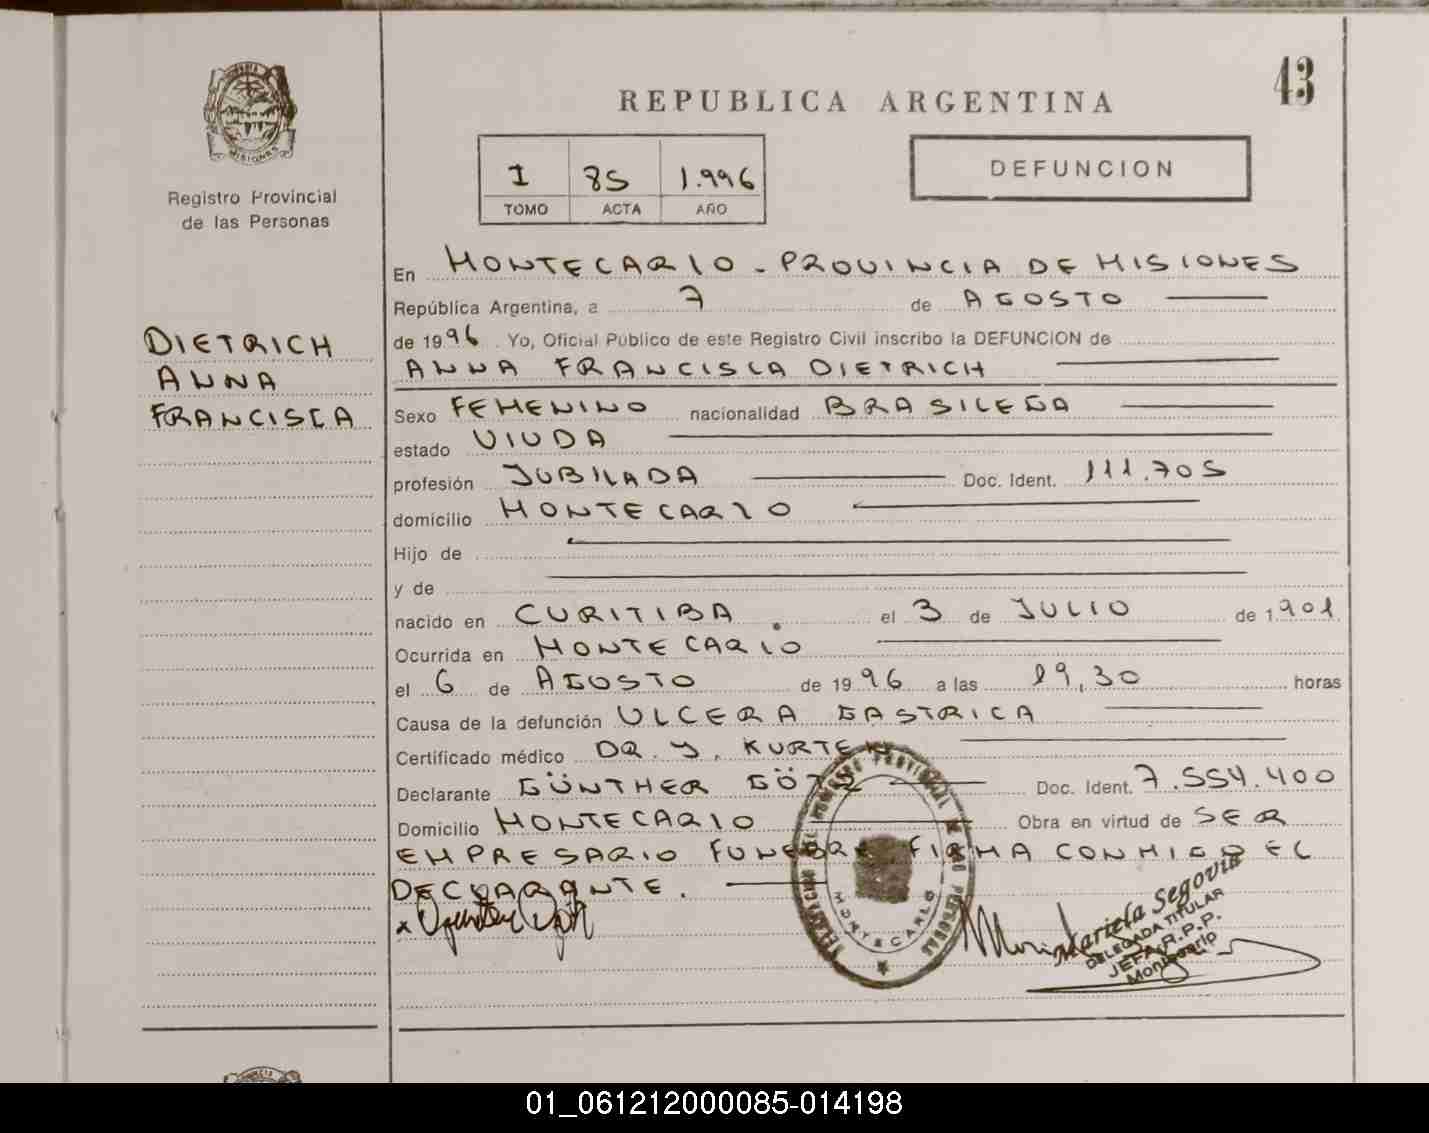 MISIONES
Registro Provincial
de las Personas
DIETRICH
ANNA
FRANCISCA
43
REPUBLICA ARGENTINA
I 85 1.996
TOMO ACTA AÑO
DEFUNCION
En MONTECARLO - PROVINCIA DE MISIONES
República Argentina, a 7 de AGOSTO
de 1996. Yo, Oficial Público de este Registro Civil inscribo la DEFUNCION de
ANNA FRANCISCA DIETRICH
Sexo FEMENINO nacionalidad BRASILEÑA
estado VIUDA
profesión JUBILADA Doc. Ident. 111.705
domicilio MONTECARLO
Hijo de
y de
nacido en CURITIBA el 3 de JULIO de 1.901
Ocurrida en MONTECARLO
el 6 de AGOSTO de 1996 a las 19,30 horas
Causa de la defunción ULCERA GASTRICA
Certificado médico DR. Y. KURTEN
Declarante GÜNTHER GÖTZ Doc. Ident. 7.554.400
Domicilio MONTECARLO Obra en virtud de SER
EMPRESARIO FUNEBRE FIRMA CONMIGO EL
DECLARANTE.
MONTECARLO
Mariela Segovia
DELEGADA TITULAR
JEFA R.P.P.
Montecarlo
01_061212000085-014198